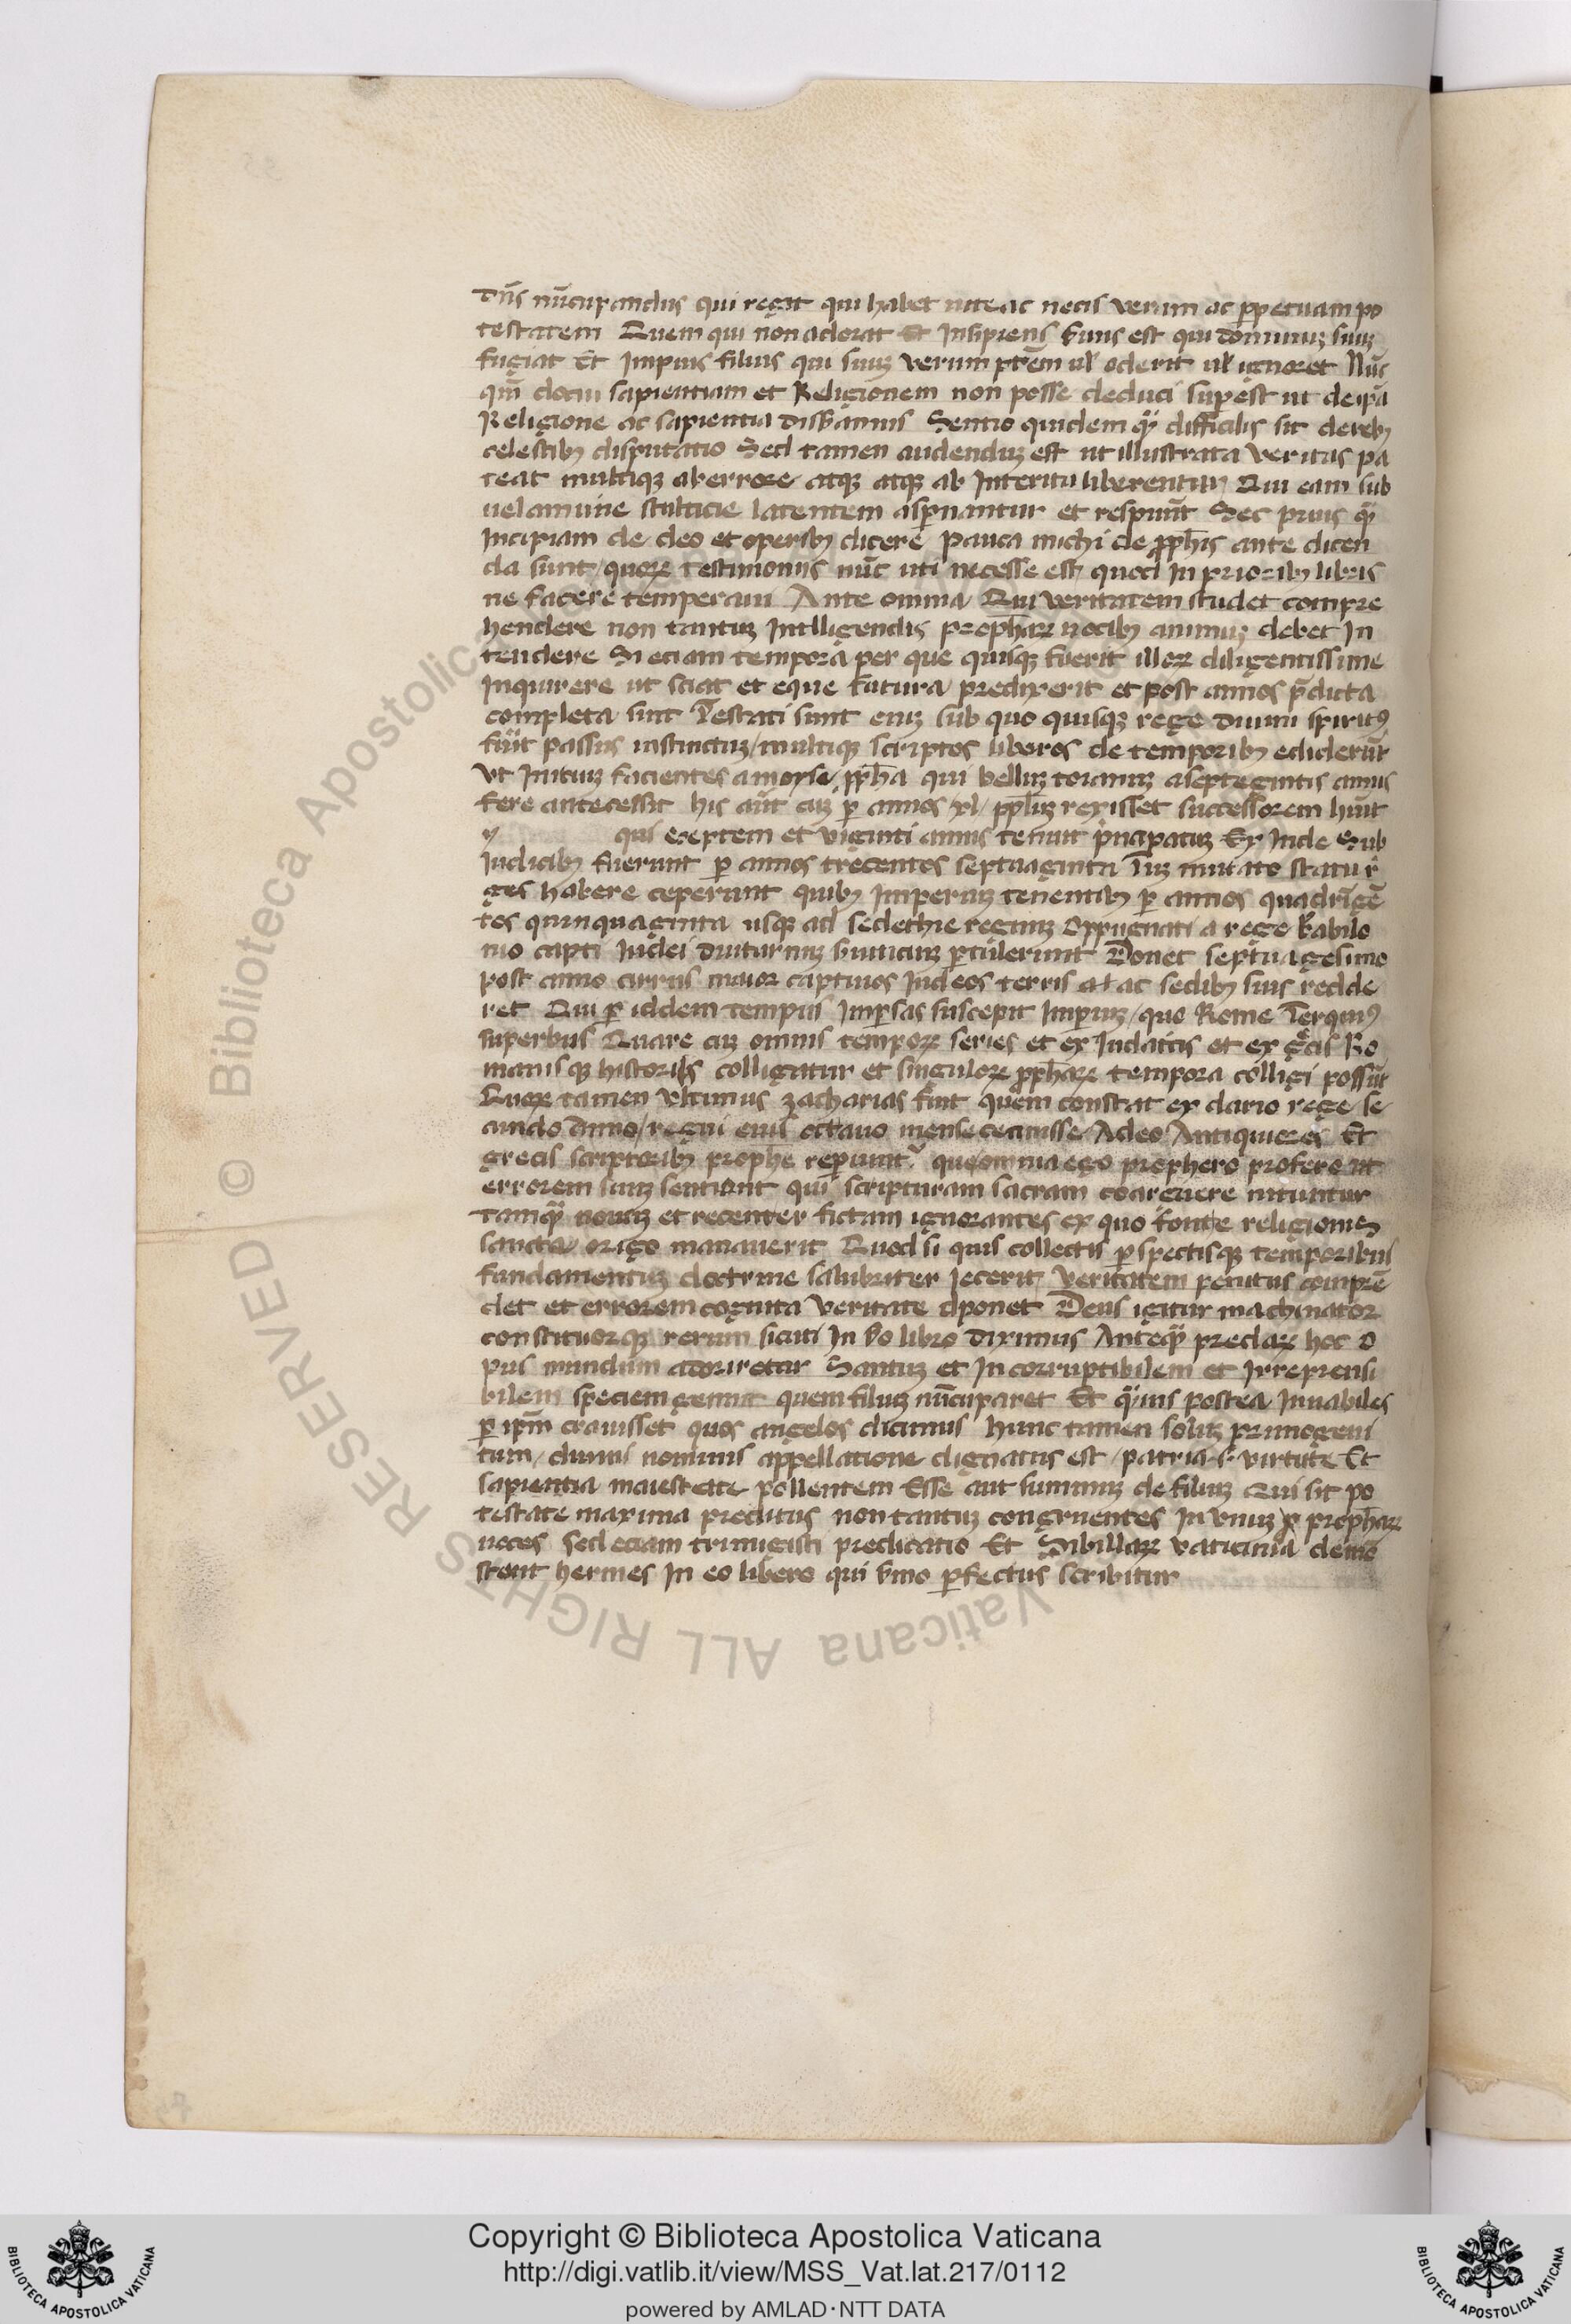 dn̄s nūcupandus qui regit qui habet uite ac necis verum ac ꝑpetuam po
testatem Quem qui non adorat Et Insipiens ẜuus est qui dominuꝫ suuꝫ
fugiat Et Impius filius qui suuꝫ verum pr̄em ul̓ oderit ul̓ ignoret Nūc
qm̄ docui sapientiam et Religionem non posse deduci suꝑest ut de ip̄a
Religione ac sapientia disẜamus Sentio quidem qͣ difficilis sit de rebꝫ
celestibꝫ disputatio Sed tamen audenduꝫ est ut illustrata veritas pa
teat multiqꝫ ab errore atqꝫ atqꝫ ab Interitu liberentur Qui eam sub
uelamine stulticie latentem asꝑnantur et respuūt Sec prius qͣ
Incipiam de deo et operibꝫ dicere pauca michi de ꝓph̄is ante dicen
da sunt / quoꝝ testimoniis nūc uti necesse est quod In prioribꝫ libris
ne facere temperaui Ante omnia Qui veritatem studet compre
hendere non tantuꝫ Intlligendis prophetaꝝ uocibꝫ animuꝫ debet In
tendere Si eciam tempora per que quisqꝫ fuerit illoꝝ diligentissime
Inquirere ut sciat et eque futura predixerit et post annos p̄dicta
completa sint Testati sunt eniꝫ sub quo quisqꝫ rege diuini spiritꝰ
fūit passus instinctuꝫ / multiqꝫ scriptos liberos de temporibꝫ ediderūt
Vt Inituꝫ facientes a moyse ꝓph̄a qui belluꝫ toianuꝫ a septegintis annis
fere antecessit his aūt cuꝫ ꝑ annos /xl/ ppl̄uꝫ rexisset successorem hūit
y qui eseptem et viginti annis tenuit p̓ncipatuꝫ Ex Inde Sub
Iudicibꝫ fuerunt ꝑ annos trecentos septuaginta Tuꝫ mutato statu r̄
ges habere ceperunt quibꝫ Imperiuꝫ tenentibꝫ ꝑ annos quadrīgē
tos quinquaginta usqꝫ ad sedethie regnuꝫ Oppugnati a rege babilo
nio capti Iudei diuturnuꝫ ẜuiciuꝫ ꝑtulerunt Donec septuagesimo
post anno cirrus maior captiuos Iudeos terris at ac sedibꝫ suis redde
ret Qui ꝑ iddem tempus Imꝑsas suscepit Imꝑiuꝫ / quo Rome Terquinꝰ
superbus Quare cuꝫ omnis tempoꝝ series et ex Iudaicis et ex gͤcis Ro
manis qꝫ historiis colligatur et singuloꝝ ꝓph̄aꝝ tempora colligi possūt
Quoꝝ tamen vltimus zacharias fuit quem constat ex dario rege se
cundo anno / regni eius octauo mense cecinisse Adeo Antiquiores Et
grecis scriptoribꝫ prophe reperiunt᷑ que omnia ego prophero profero ut
errorem suuꝫ sentiant qui scripturam sacram coarguere nituntur
tamqͣ nouaꝫ et recenter fictam ignorantes ex quo fonte religionis
sancta origo manauerit Quod si quis collectis ꝑspectisqꝫ temporibus
fundamentuꝫ doctrine salubriter Iecerit veritatem penitus compre
det et errorem cognita veritate dponet Deus igitur machinator
constituorqꝫ rerum sicuti In ẜo libro diximus Anteqͣ preclaꝝ hoc o
pus mundum adoriretur Santuꝫ et In corruptibilem et Irreprensi
bilem speciem genuit quem filiuꝫ nūcuparet Et qͣuis postea Inuabiles
ꝑ ip̄m creauisset quos angelos dicimus hunc tamen soluꝫ primogeni
tum / diuini nominis appellatione dignatus est / patria .s. virtute Et
sapientia maiestate pollentem Esse aut summuꝫ de filiuꝫ Qui sit po
testate maxima preditus non tantuꝫ congruentes In vnuꝫ prophetaꝝ
uoces sed eciam trimigisti predicatio Et Sibillaꝝ vaticinia demō
strant hermes In eo libero qui ẜmo ꝑfectus scribitur
Copyright © Biblioteca Apostolica Vaticana
http://digi.vatlib.it/view/MSS_Vat.lat.217/0112
powered by AMLAD·NTT DATA
BIBLIOTECA APOSTOLICA VATICANA
BIBLIOTECA APOSTOLICA VATICANA
© Biblioteca Apostolica Vaticana ALL RIGHTS RESERVED